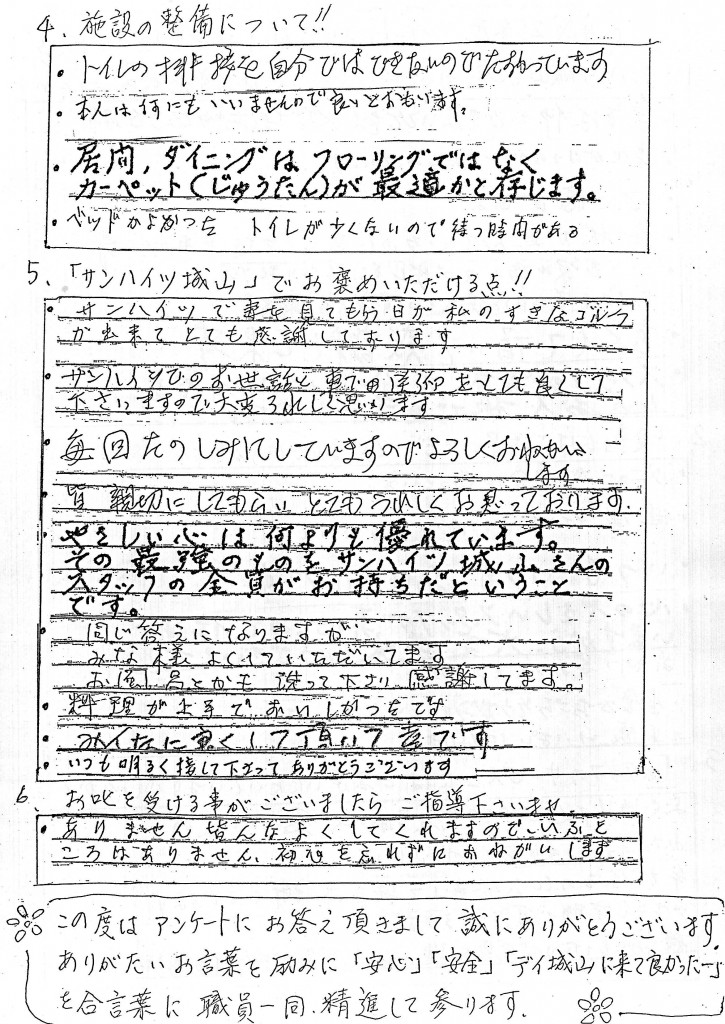 4、施設の整備について!!
・トイレの 自分ではできないのでたすかっています
・本人は何にもいいませんので良いとおもいます。
・居間,ダイニングはフローリングではなく
カーペット(じゅうたん)が最適かと存じます。
・ベッドがよかった トイレが少くないので待つ時間がある
5、「サンハイツ城山」でお褒めいただける点!!
・サンハイツで妻を見てもらう日が私のすきなゴルフ
が出来てとても感謝しております
・サンハイツでのお世話と車での をとても良くして
下さいますので大変うれしく思います
・毎回たのしみにしていますのでよろしくおねがい
します
・皆親切にしてもらいとてもうれしくお思っております.
・やさしい心は何よりも優れています。
その最強のものをサンハイツ城山さんの
スタッフの全員がお持ちだということ
です。
・同じ答えになりますが
みな様よくしていただいてます
お風呂とかも洗って下さり感謝してます。
・料理が上手でおいしかったです
・みんなに良くして頂いて です
・いつも明るく接して下さってありがとうございます
6、お叱を受ける事がございましたらご指導下さいませ.
・ありません皆んなよくしてくれますのでいふと
ころはありません、初心を忘れずにおねがいします
この度はアンケートにお答え頂きまして誠にありがとうございます.
ありがたいお言葉を励みに「安心」「安全」「デイ城山に来て良かったー」
を合言葉に職員一同、精進して参ります.